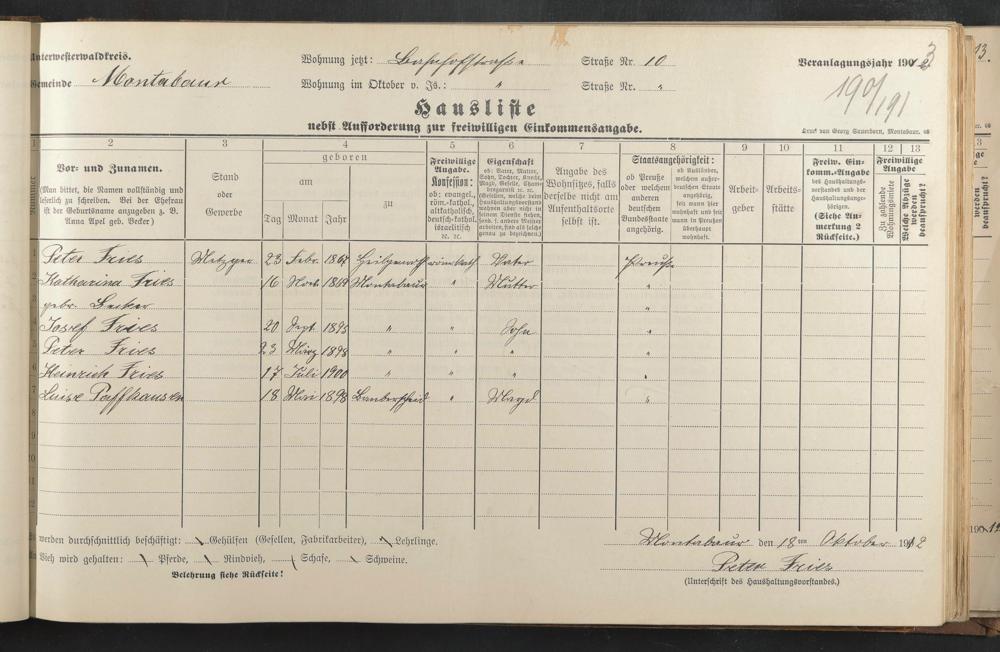 Unterwesterwaldkreis.
Gemeinde Montabaur
Wohnung jetzt: Bahnhofstraße Straße Nr. 10
Wohnung im Oktober v. Js.: " Straße Nr. "
Veranlagungsjahr 1913
190/191
Hausliste
nebst Aufforderung zur freiwilligen Einkommensangabe.
Druck von Georg Sauerborn, Montabaur.
1 2 3 4 5 6 7 8 9 10 11 12 13
Nummer
Vor- und Zunamen.
(Man bittet, die Namen vollständig und leserlich zu schreiben. Bei der Ehefrau ist der Geburtsname anzugeben z. B. Anna Apel geb. Becker)
Stand oder Gewerbe
geboren
am
Tag Monat Jahr
zu
Freiwillige Angabe.
Konfession:
ob: evangel., röm.-kathol., altkatholisch, deutsch-kathol. israelitisch ec. ec.
Eigenschaft
Angabe des Wohnsitzes, falls derselbe nicht am Aufenthaltsorte selbst ist.
Staatsangehörigkeit:
ob Preuße oder welchem anderen deutschen Bundesstaate angehörig.
ob Ausländer, welchem außerdeutschen Staate angehörig, seit wann hier wohnhaft und seit wann in Preußen überhaupt wohnhaft.
Arbeitgeber
Arbeitsstätte
Freiw. Einkomm.-Angabe
des Haushaltungsvorstandes und der Haushaltungsangehörigen.
(Siehe Anmerkung 2 Rückseite.)
Freiwillige Angabe
Zu zahlende Wohnungsmiete
Welche Abzüge werden beansprucht?
1 Peter Fries Metzger 23 Febr. Vater Preuße
2 Katharina Fries 16 1869 Montabaur " Mutter "
3 gebr. Becker "
4 Josef Fries 20 Sept. 1895 " " Sohn "
5 Peter Fries 23 März 1898 " " " "
6 Heinrich Fries 17 Juli 1900 " " " "
7 Luise 18 Mai 1898 " Magd "
8
9
10
11
12
werden durchschnittlich beschäftigt: Gehülfen (Gesellen, Fabrikarbeiter), Lehrlinge.
Vieh wird gehalten: Pferde, Rindvieh, Schafe, Schweine.
Belehrung siehe Rückseite!
Montabaur den 18ten Oktober 1912
Peter Fries
(Unterschrift des Haushaltungsvorstandes.)
13.
werden beansprucht?